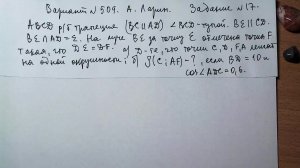 Вариант № 509. А. Ларин. Задание № 17.
ABCD р/б трапеция (BC ∥ AD) ∠BCD - тупой. BE ∥ CD.
BE ∩ AD = E. На луче BE за точку E отмечена точка F
такая, что DE = DF. а) Д-те, что точки C, D, F, A лежат
на одной окружности; б) ρ(C; AF) - ?, если BD = 10 и
cos∠ADC = 0,6.